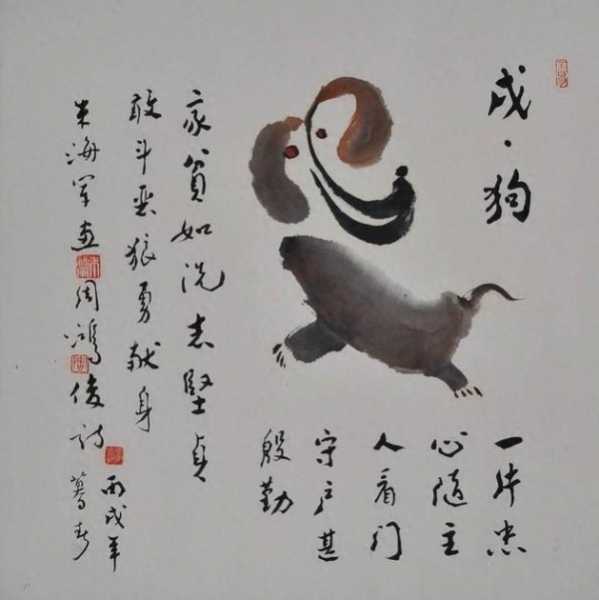 戌·狗
一片忠
心隨主
人看门
守户甚
殷勤
家贫如洗志堅贞
敢斗恶狼勇献身
朱海军画 周鸿俊诗
丙戌年
暮春